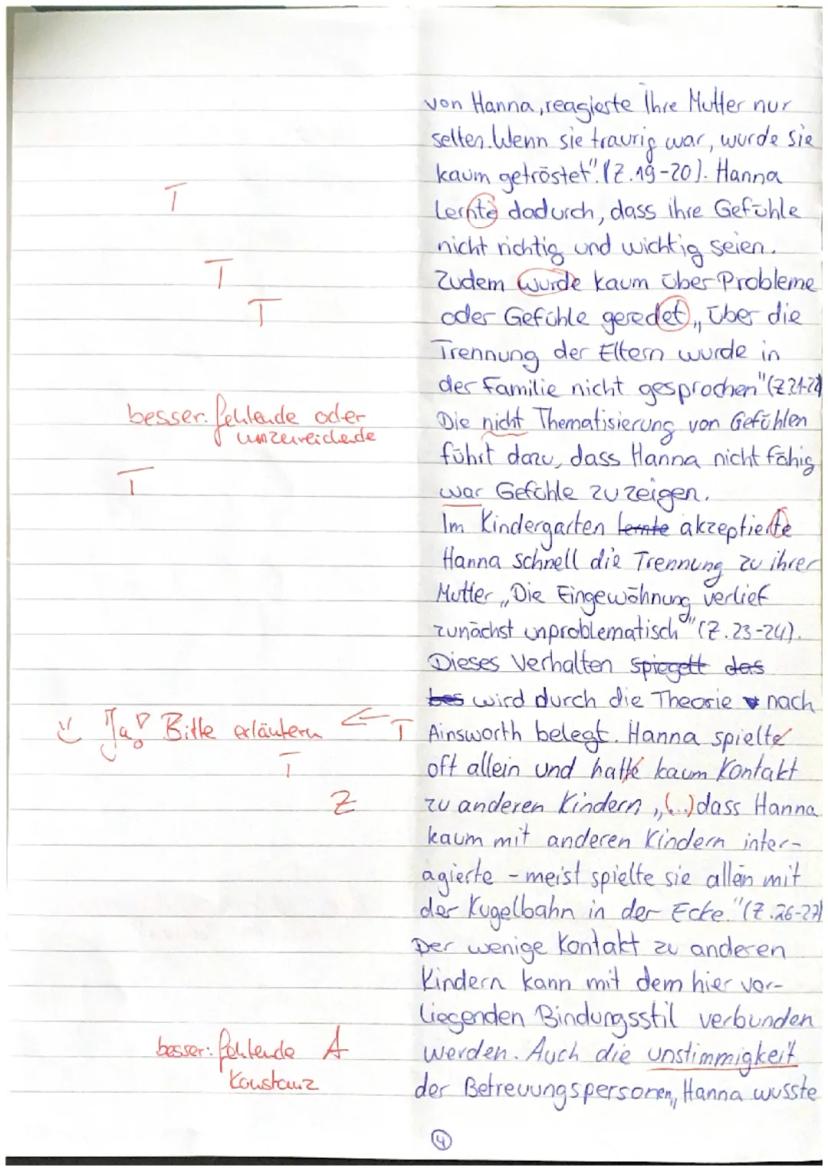 von Hanna, reagierte Ihre Mutter nur
selten. Wenn sie traurig war, wurde sie
kaum getröstet". (Z.19-20). Hanna
T
lernte dadurch, dass ihre Gefühle
nicht richtig und wichtig seien.
T
Zudem wurde kaum über Probleme
T
oder Gefühle geredet „Über die
Trennung der Eltern wurde in
der Familie nicht gesprochen" (Z.21-22)
besser: fehlende oder
unzureichende
Die nicht Thematisierung von Gefühlen
führt dazu, dass Hanna nicht fähig
T
war Gefühle zu zeigen.
Im Kindergarten lernte akzeptierte
Hanna schnell die Trennung zu ihrer
Mutter „Die Eingewöhnung verlief
zunächst unproblematisch" (Z.23-24).
Dieses Verhalten spiegelt das
bes wird durch die Theorie nach
Ja! Bitte erläutern ← T
Ainsworth belegt. Hanna spielte
T
oft allein und hatte kaum Kontakt
Z
zu anderen Kindern „(...) dass Hanna
kaum mit anderen Kindern inter-
agierte - meist spielte sie allein mit
der Kugelbahn in der Ecke." (Z.26-27)
Der wenige Kontakt zu anderen
Kindern kann mit dem hier vor-
liegenden Bindungsstil verbunden
besser: fehlende A
Konstanz
werden. Auch die unstimmigkeit
der Betreuungspersonen „Hanna wusste
4